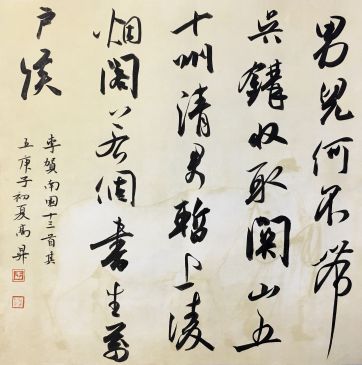 男兒何不帶
吳鉤收取關山五
十州請君暫上凌
烟閣若個書生萬
户侯
李賀南園十三首其
五庚子初夏高昇